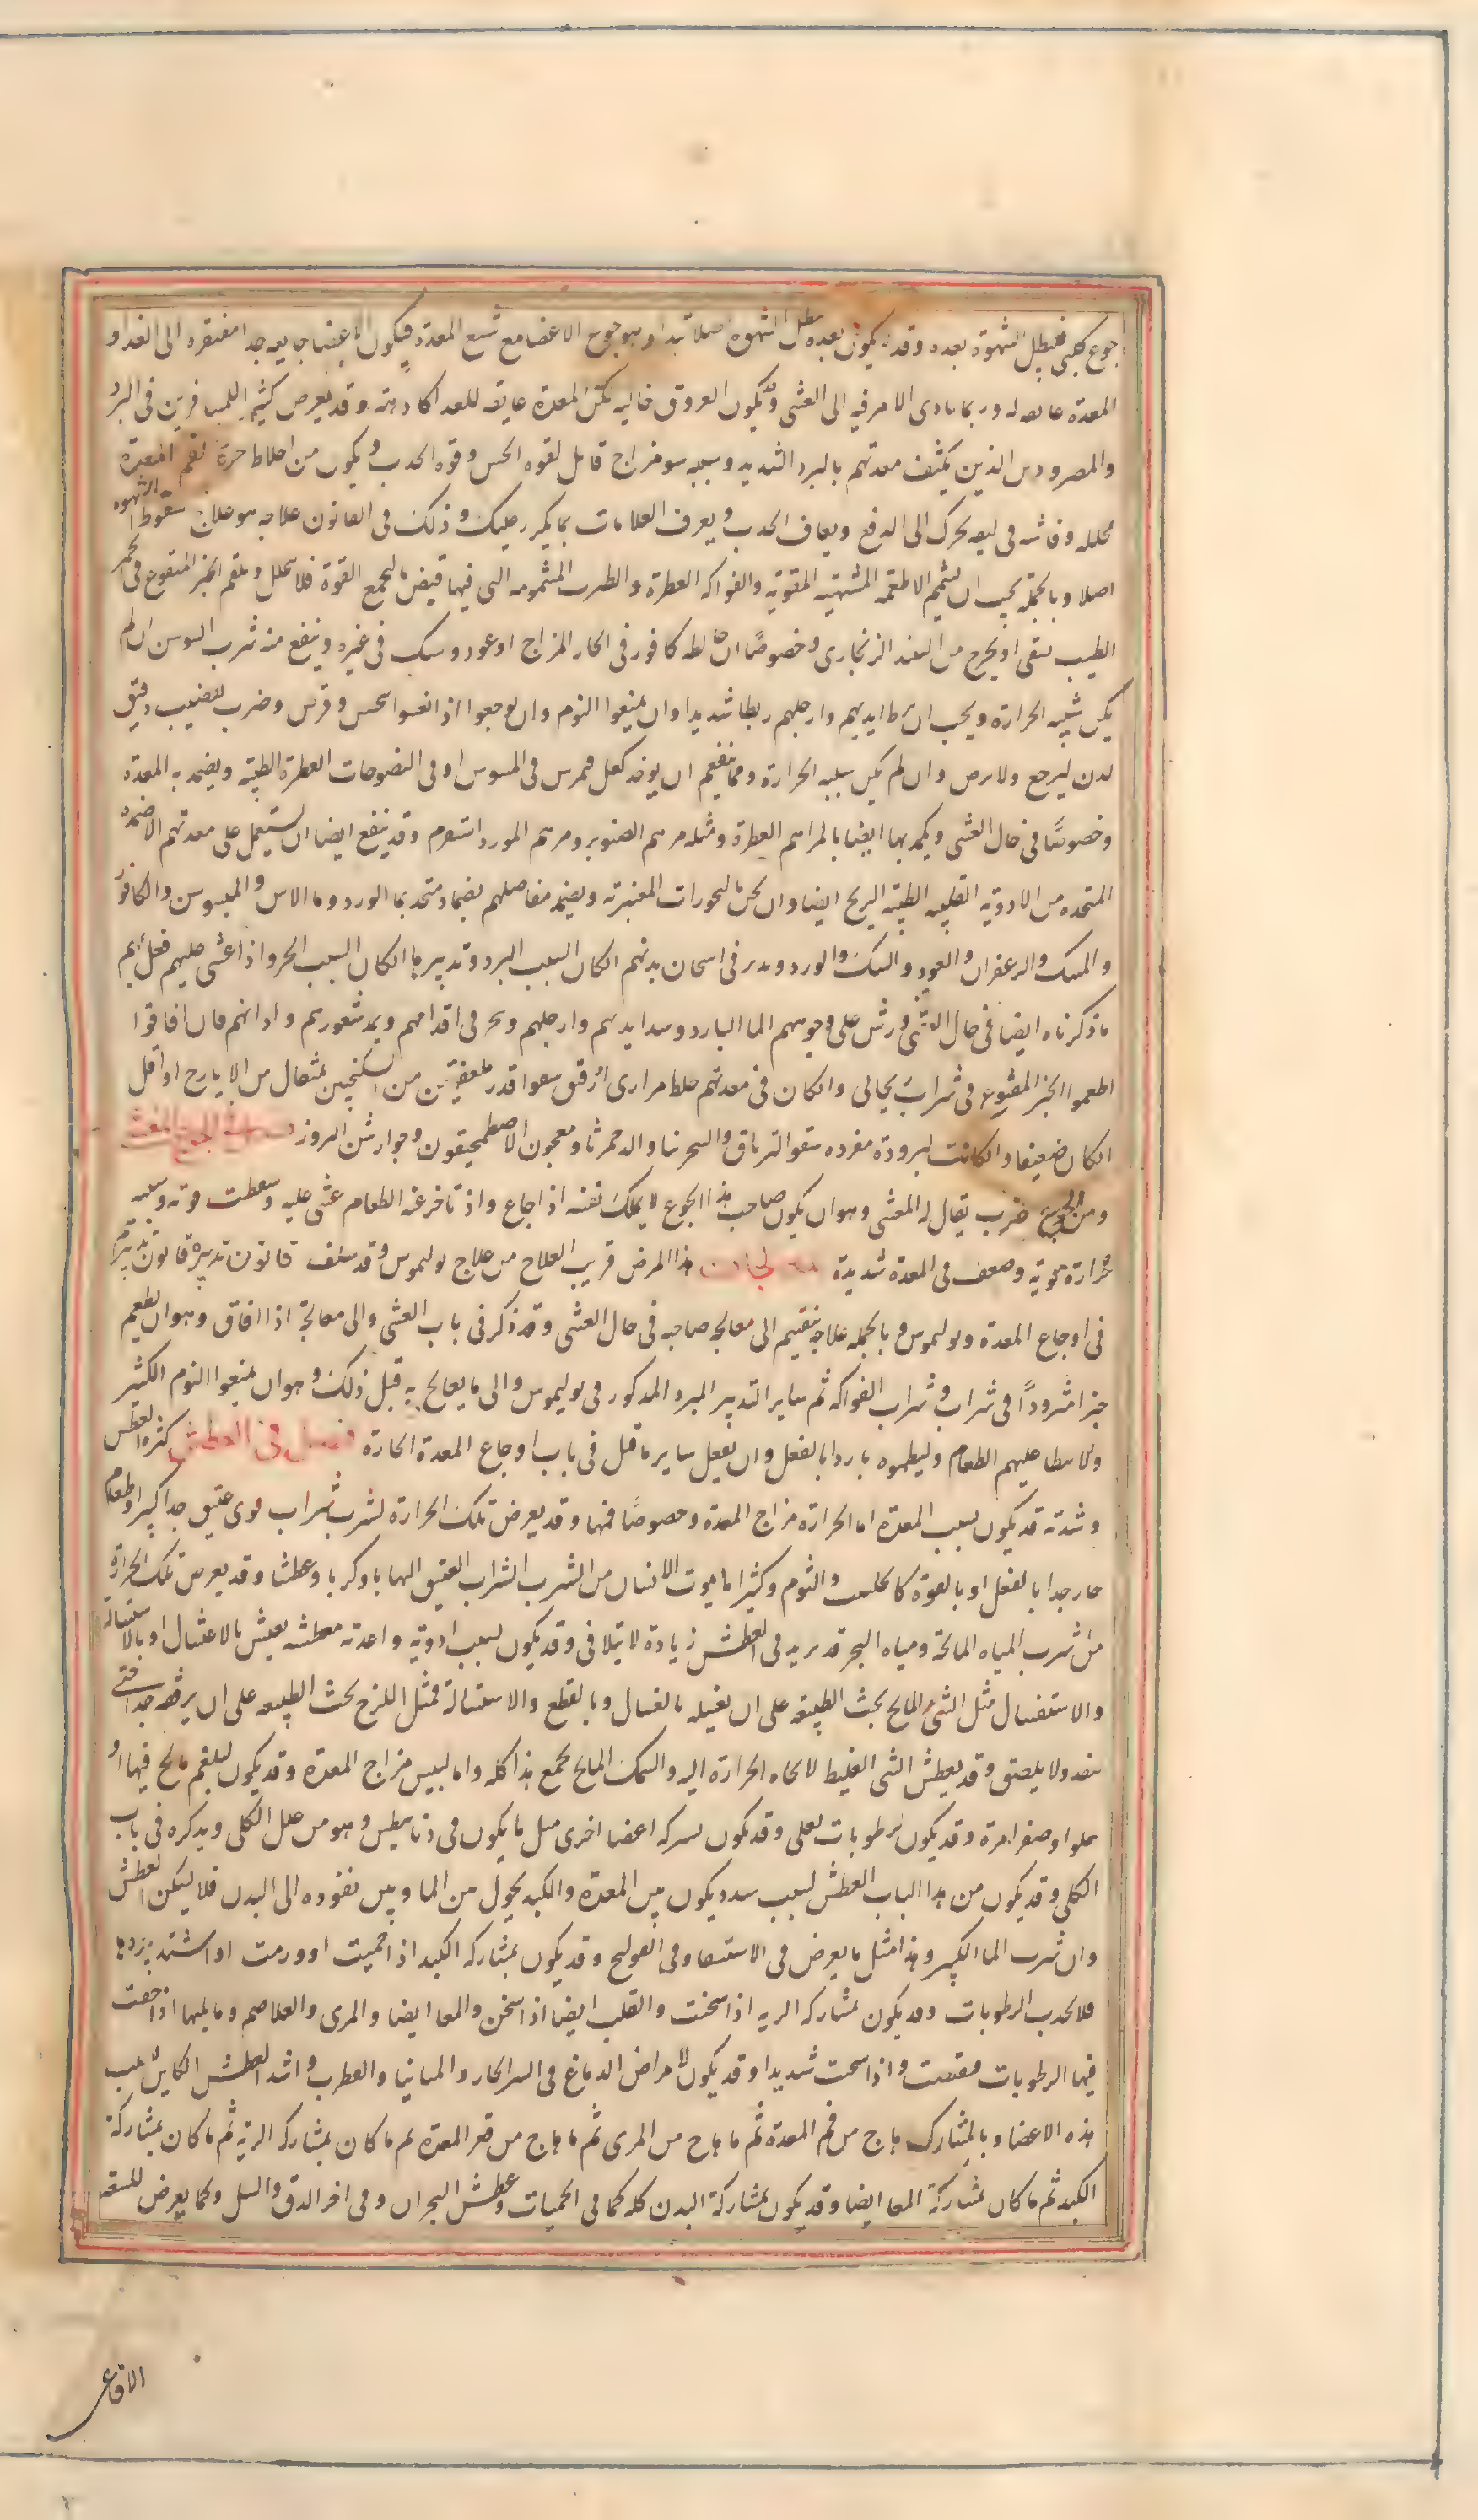 جوع كلبي فتبطل الشهوة بعده وقد يكون بعده تبطل الشهوة اصلا ابتدا وهو جوع الاعضا مع شبع المعدة فيكون الاعضا جايعه جدا مفتقره الى الغدا و
المعدة عايفه له وربما تادى الامر فيه الى الغشى وتكون العروق خاليه لكن المعدة عايفه للغدا كارهة وقد يعرض كثيرا للمسافرين فى البرد
والمصرودين الذين يكثف معدتهم بالبرد الشديد وسببه سو مزاج قاتل لقوه الحس وقوه الجدب ويكون من اخلاط حرة لفم المعدة
محلله وفاشيه فى ليفه تحرك الى الدفع ويعاف الجدب ويعرف العلامات بما يكرر عليك وذلك فى القانون علاجه هو علاج سقوط الشهوه
اصلا وبالجملة يجب ان يشمم الاطعمه المشهيه المقويه والفواكه العطرة والطيب المشمومه التى فيها قبض لتجمع القوة فلا تتحلل ويلقم الخبز المنقوع فى الخمر
الطيب يسقى او يجرع من النبيذ الريحانى وخصوصا ان خالطه كافور فى الحار المزاج او عود وسك فى غيره وينفع منه شرب السوسن ان لم
يكن سببه الحرارة ويجب ان يربط ايديهم وارجلهم ربطا شديدا وان يمنعوا النوم وان يوجعوا اذا نعسوا بنخس وقرص وضرب بقضيب دقيق
لدن ليوجع ولا يرض وان لم يكن سببه الحرارة ومما ينفعهم ان يوخد كعك فيمرس فى الميسوس او فى النضوحات العطرة الطيبه ويضمد به المعدة
وخصوصا فى حال الغشى ويكمد بها ايضا بالمراهم العطرة ومثله مرهم الصنوبر ومرهم المورد اسفرم وقد ينفع ايضا ان يستعمل على معدتهم الاضمدة
المتخده من الادوية القلبيه الطيبه الريح ايضا وان يبخر بالبخورات المعنبرة ويضمد مفاصلهم بضماد متخد بما الورد وما الاس والميسوسن والكافور
والمسك والزعفران والعود والسك والورد ويدبر فى اسخان بدنهم ان كان السبب البرد وتدبيرها ان كان السبب الحر واذا غشى عليهم فعل بهم
ما ذكرناه ايضا فى حال الغشى ورش على وجوههم الما البارد وشد ايديهم وارجلهم ونخز فى اقدامهم ويمد شعورهم واذانهم فان افاقوا
اطعموا الخبز المنقوع فى شراب ريحانى وان كان فى معدتهم خلط مرارى او رقيق سقوا قدر ملعقتين من السكنجبين بمثقال من الايارج او اقل
ان كان ضعيفا وان كانت لبرودة مفرده سقوا الترياق والسجزنيا والدحمرثا ومعجون الاصطمحيقون وجوارش البزور فصل فى الجوع المغشى
ومن الجوع ضرب يقال له المغشى وهو ان يكون صاحب هذا الجوع لا يملك نفسه اذا جاع واذا تاخر عنه الطعام غشى عليه وسقطت قوته وسببه
حرارة قوية وضعف فى المعدة شديدة المعالجات هذا المرض قريب العلاج من علاج بوليموس وقد سلف قانون تدبيره قانون تدبيرهم
فى اوجاع المعدة وبوليموس وبالجمله علاجه ينقسم الى معالجه صاحبه فى حال الغشى وقد ذكر فى باب الغشى والى معالجته اذا افاق وهو ان يطعم
خبزا مثرودا فى شراب وشراب الفواكه ثم ساير التدبير المبرد المدكور فى بوليموس والى ما يعالج به قبل ذلك وهو ان يمنعوا النوم الكثير
ولا يبطا عليهم الطعام وليطعموه باردا بالفعل وان يفعل ساير ما قيل فى باب اوجاع المعدة الحارة فصل فى العطش كثرة العطش
وشدته قد يكون بسبب المعدة اما الحرارة مزاج المعدة وخصوصا فمها وقد يعرض تلك الحرارة لشرب شراب قوى عتيق جدا كثيرا وطعام
حار جدا بالفعل او بالقوة كالحلتيت والثوم وكثيرا ما يموت الانسان من الشرب الشراب العتيق الهابا وكربا وعطشا وقد يعرض تلك الحرارة
من شرب المياه المالحة ومياه البحر قد يزيد فى العطش زيادة لا يتلافى وقد يكون بسبب ادوية واغدية معطشه
والاستفسال مثل الشى المالح يحث الطبيعه على ان يغسله بالغسال وبالقطع والاسالة مثل اللزج يحث الطبيعه على ان يرققه جدا حتى
ينفد ولا يلصق وقد يعطش الشى الغليظ لاتجاه الحرارة اليه والسمك المالح يجمع هذا كله واما ليبس مزاج المعدة وقد يكون لبلغم مالح فيها او
حلو او صفرا مرة وقد يكون لرطوبات تغلى وقد يكون بسبب شركه اعضا اخرى مثل ما يكون فى ذيابيطس وهو من علل الكلى ويدكره فى باب
الكلى وقد يكون من هدا الباب العطش لسبب سدد يكون بين المعدة والكبد يحول بين الما وبين نفوده الى البدن فلا يسكن العطش
وان شرب الما الكثير وهذا مثل ما يعرض فى الاستسقا وفى القولنج وقد يكون بمشاركه الكبد اذا حميت او ورمت او اشتد بردها
فلا يجدب الرطوبات وقد يكون بمشاركه الريه اذا سخنت والقلب ايضا اذا سخن والمعا ايضا والمرى والغلاصم وما يليها اذا جفت
فيها الرطوبات فتقبضت واذا سخنت شديدا وقد يكون لامراض الدماغ فى السرسام الحار والمانيا والقطرب واشد العطش الكاين بسبب
هذه الاعضا وبالمشاركه ما هاج من فم المعدة ثم ما هاج من المرى ثم ما هاج من قعر المعدة ثم ما كان بمشاركه الريه ثم ما كان بمشاركة
الكبد ثم ما كان بمشاركة المعا ايضا وقد يكون بمشاركة البدن كله كما فى الحميات وعطش البحران وفى اخر الدق والسل وكما يعرض للسعه
الافاعى